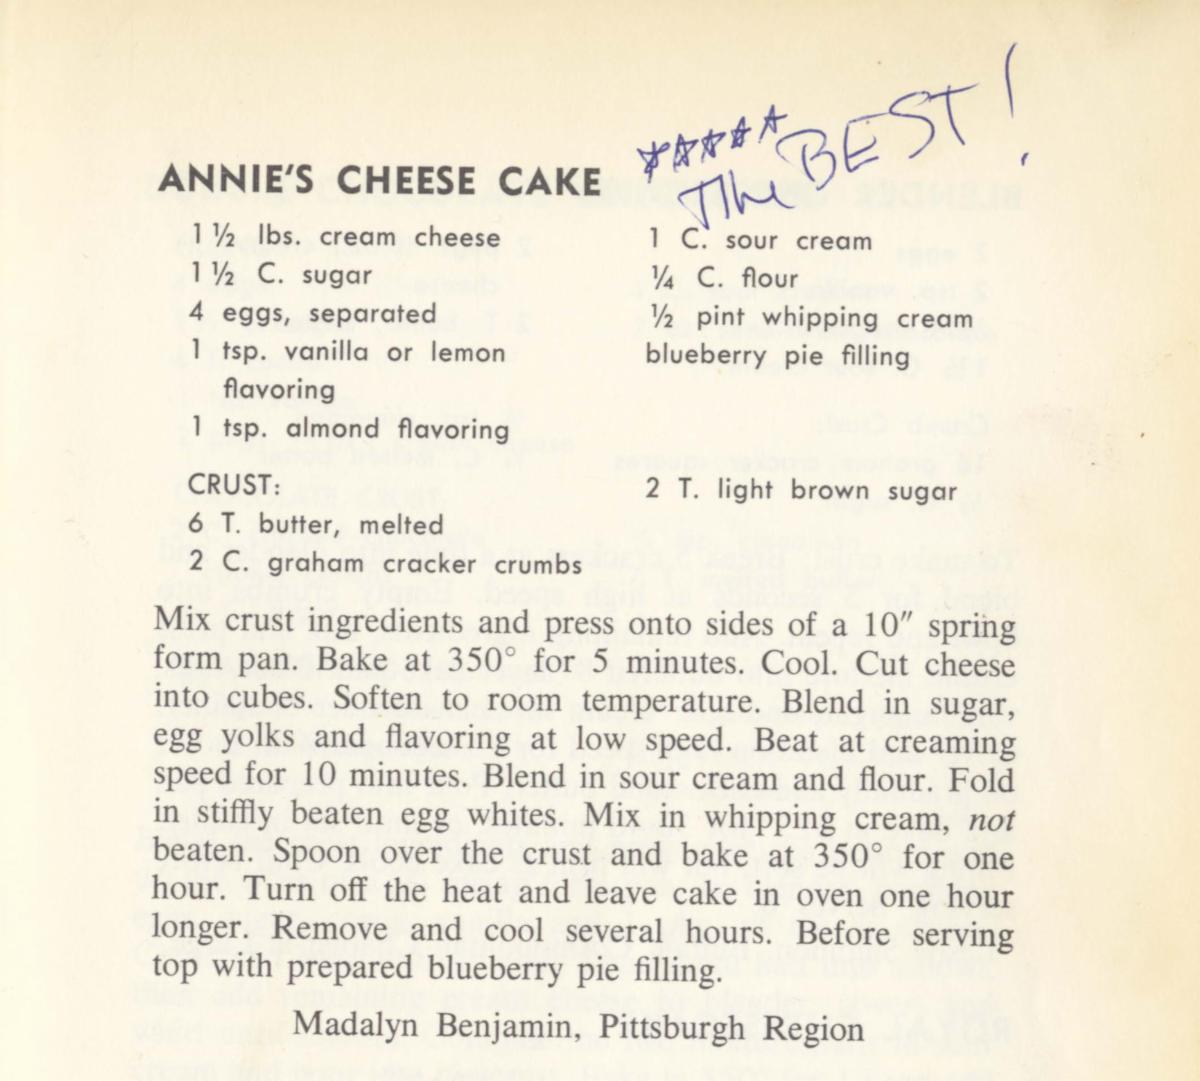 ***** The BEST!
ANNIE'S CHEESE CAKE
1 ½ lbs. cream cheese
1 ½ C. sugar
4 eggs, separated
1 tsp. vanilla or lemon
flavoring
1 tsp. almond flavoring
1 C. sour cream
¼ C. flour
½ pint whipping cream
blueberry pie filling
CRUST:
6 T. butter, melted
2 C. graham cracker crumbs
2 T. light brown sugar
Mix crust ingredients and press onto sides of a 10″ spring
form pan. Bake at 350° for 5 minutes. Cool. Cut cheese
into cubes. Soften to room temperature. Blend in sugar,
egg yolks and flavoring at low speed. Beat at creaming
speed for 10 minutes. Blend in sour cream and flour. Fold
in stiffly beaten egg whites. Mix in whipping cream, not
beaten. Spoon over the crust and bake at 350° for one
hour. Turn off the heat and leave cake in oven one hour
longer. Remove and cool several hours. Before serving
top with prepared blueberry pie filling.
Madalyn Benjamin, Pittsburgh Region